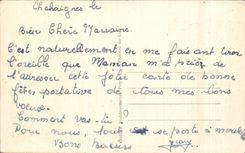 Chahaignes le
Bien Chère Marraine
C'est naturellement en me faisant tirer
l'oreille que Maman m'a prié de
t'adresser cette jolie carte de bonne
fêtes portative de tous mes bons
voeux.
Comment vas-tu
Pour nous, tout se porte à merveille
Bons Baisers